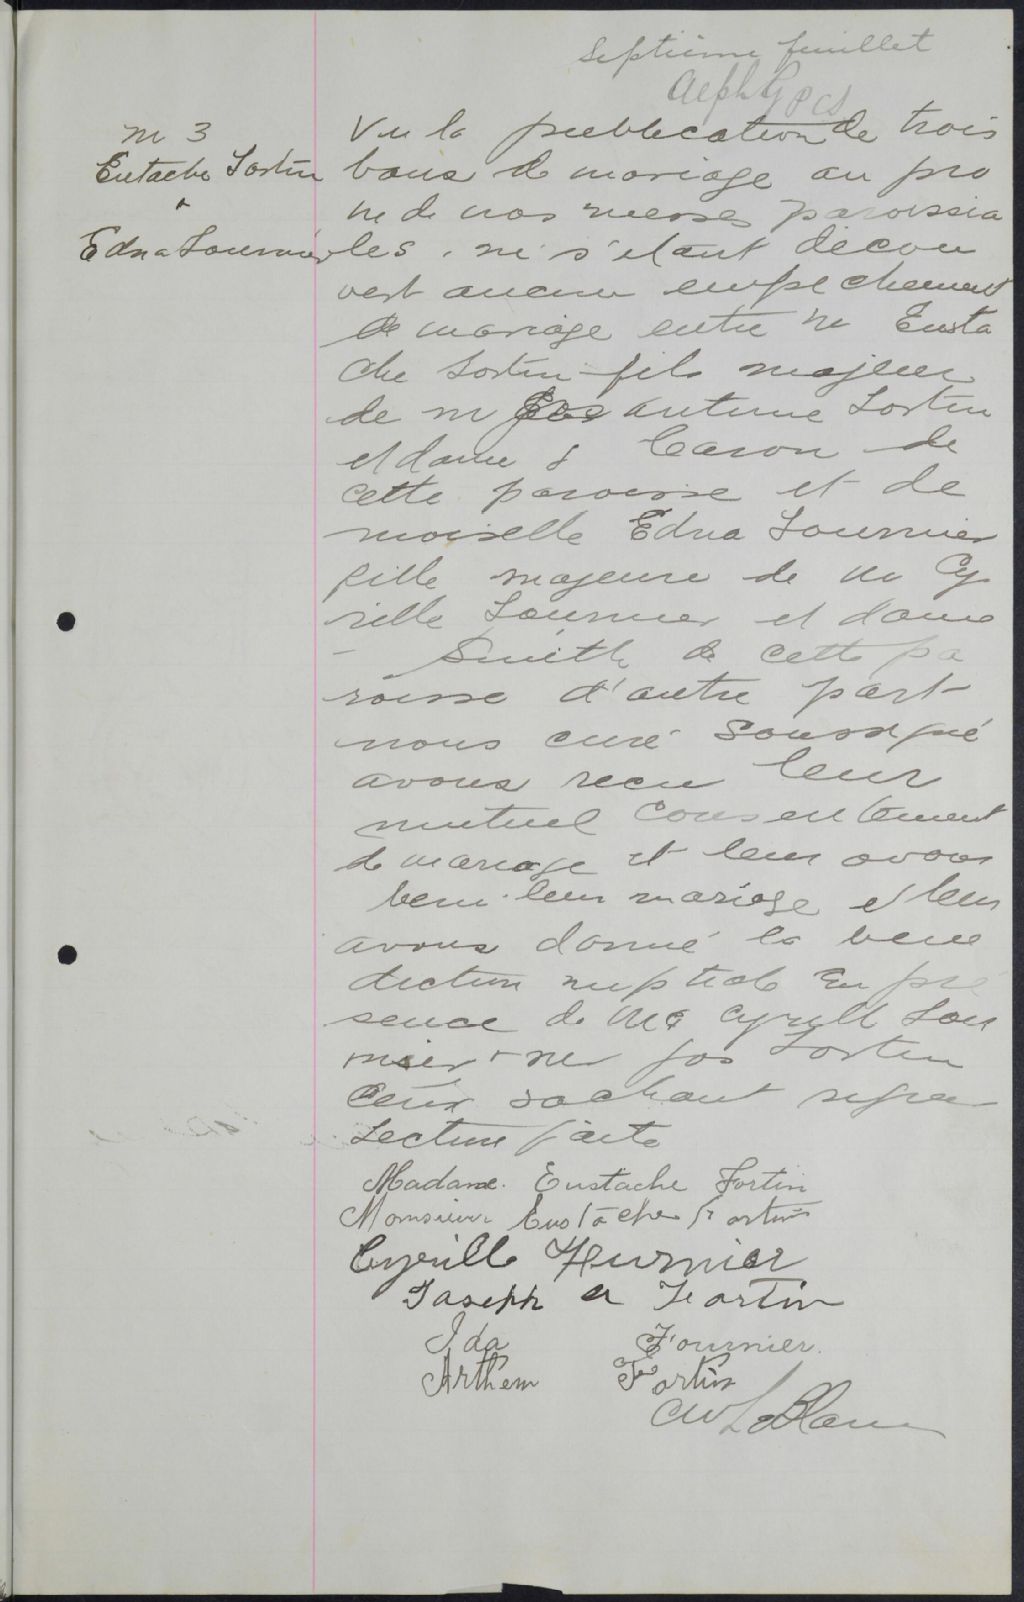 Septième feuillet
M 3
Eutache Fortin
+
Edna Fournier
Vu la publication de trois
bans de mariage au pro
ne de nos messes paroissia
les, ne s'étant décou
vert aucun empechement
de mariage entre m Eusta
che Fortin fils majeur
de m Antoine Fortin
et dame Caron de
cette paroisse et de
moiselle Edna Fournier
fille majeure de m Cy
rille Fournier et dame
- Smith de cette pa
roisse d'autre part
nous curé soussigné
avons recu leur
mutuel consentement
de mariage et leur avons
beni leur mariage et leur
avons donné la bene
diction nuptiale en pré
sence de Mr Cyrill Four
nier + mr Jos Fortin
ceux sachant signer
Lecture faite
Madame. Eustache Fortin
Monsieur Eustache Fortin
Cyrille Fournier
Joseph a Feortin
Ida Fournier.
Arthem Fortin
LeBlanc